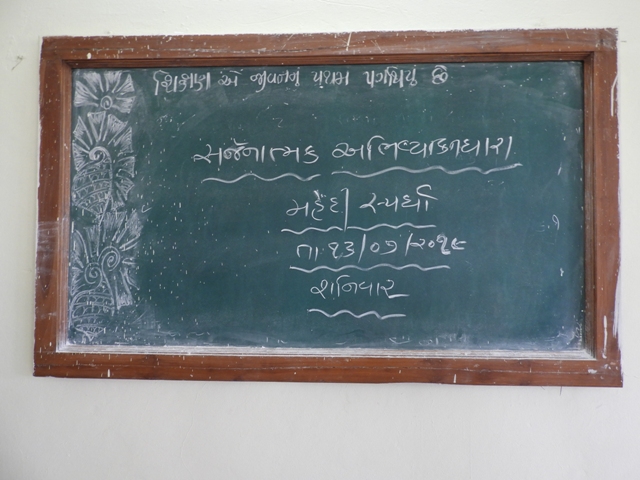 શિક્ષણ એ જીવનનું પ્રથમ પગથિયું છે
સર્જનાત્મક અભિવ્યક્તિધારા
મહેંદી સ્પર્ધા
તા ૧૩/૦૭/૨૦૧૯
શનિવાર